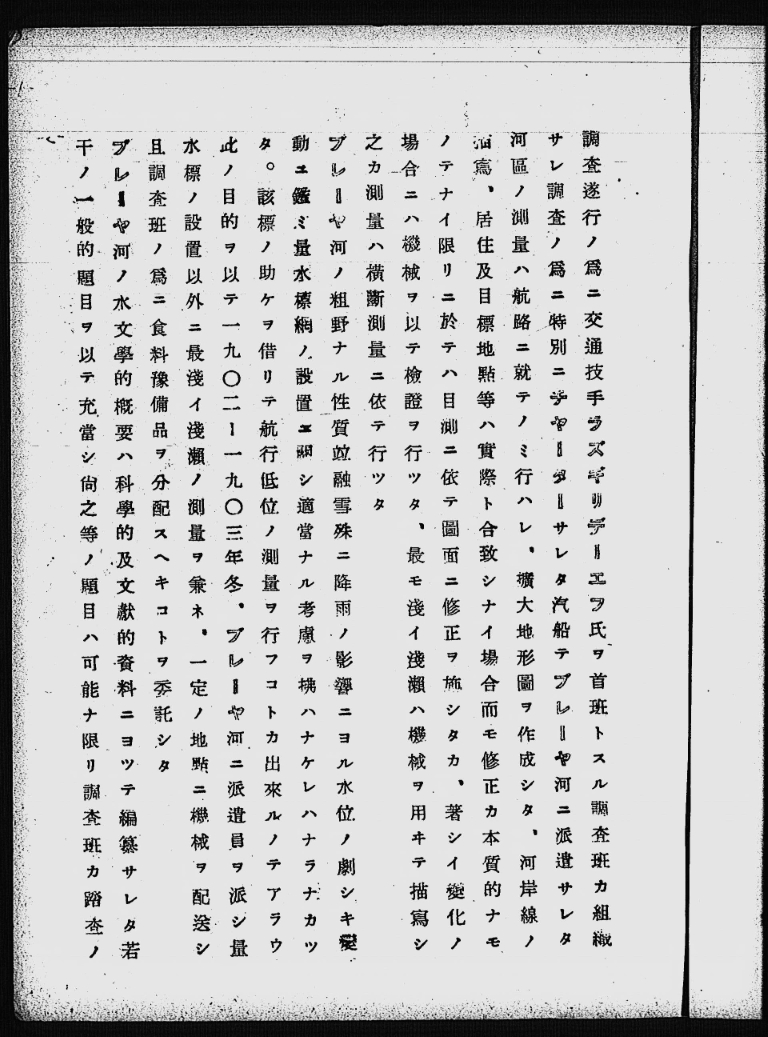 調査遂行ノ爲ニ交通技手ラズギリデーエフ氏ヲ首班トスル調査班カ組織
サレ調査ノ爲ニ特別ニチヤーターサレタ汽船テブレーヤ河ニ派遣サレタ
河區ノ測量ハ航路ニ就テノミ行ハレ、擴大地形圖ヲ作成シタ、河岸線ノ
描寫、居住及目標地點等ハ實際ト合致シナイ場合而モ修正カ本質的ナモ
ノテナイ限リニ於テハ目測ニ依テ圖面ニ修正ヲ施シタカ、著シイ變化ノ
場合ニハ機械ヲ以テ檢證ヲ行ツタ、最モ淺イ淺瀨ハ機械ヲ用ヰテ描寫シ
之カ測量ハ橫斷測量ニ依テ行ツタ
ブレーヤ河ノ粗野ナル性質竝融雪殊ニ降雨ノ影響ニヨル水位ノ劇シキ變
動ニ鑑ミ量水標網ノ設置ニ關シ適當ナル考慮ヲ拂ハナケレハナラナカツ
タ。該標ノ助ケヲ借リテ航行低位ノ測量ヲ行フコトカ出來ルノテアラウ
此ノ目的ヲ以テ一九〇二ー一九〇三年冬、ブレーヤ河ニ派遣員ヲ派シ量
水標ノ設置以外ニ最淺イ淺瀨ノ測量ヲ兼ネ、一定ノ地點ニ機械ヲ配送シ
且調査班ノ爲ニ食料豫備品ヲ分配スヘキコトヲ委託シタ
ブレーヤ河ノ水文學的槪要ハ科學的及文獻的資料ニヨツテ編纂サレタ若
干ノ一般的題目ヲ以テ充當シ尙之等ノ題目ハ可能ナ限リ調査班カ踏査ノ